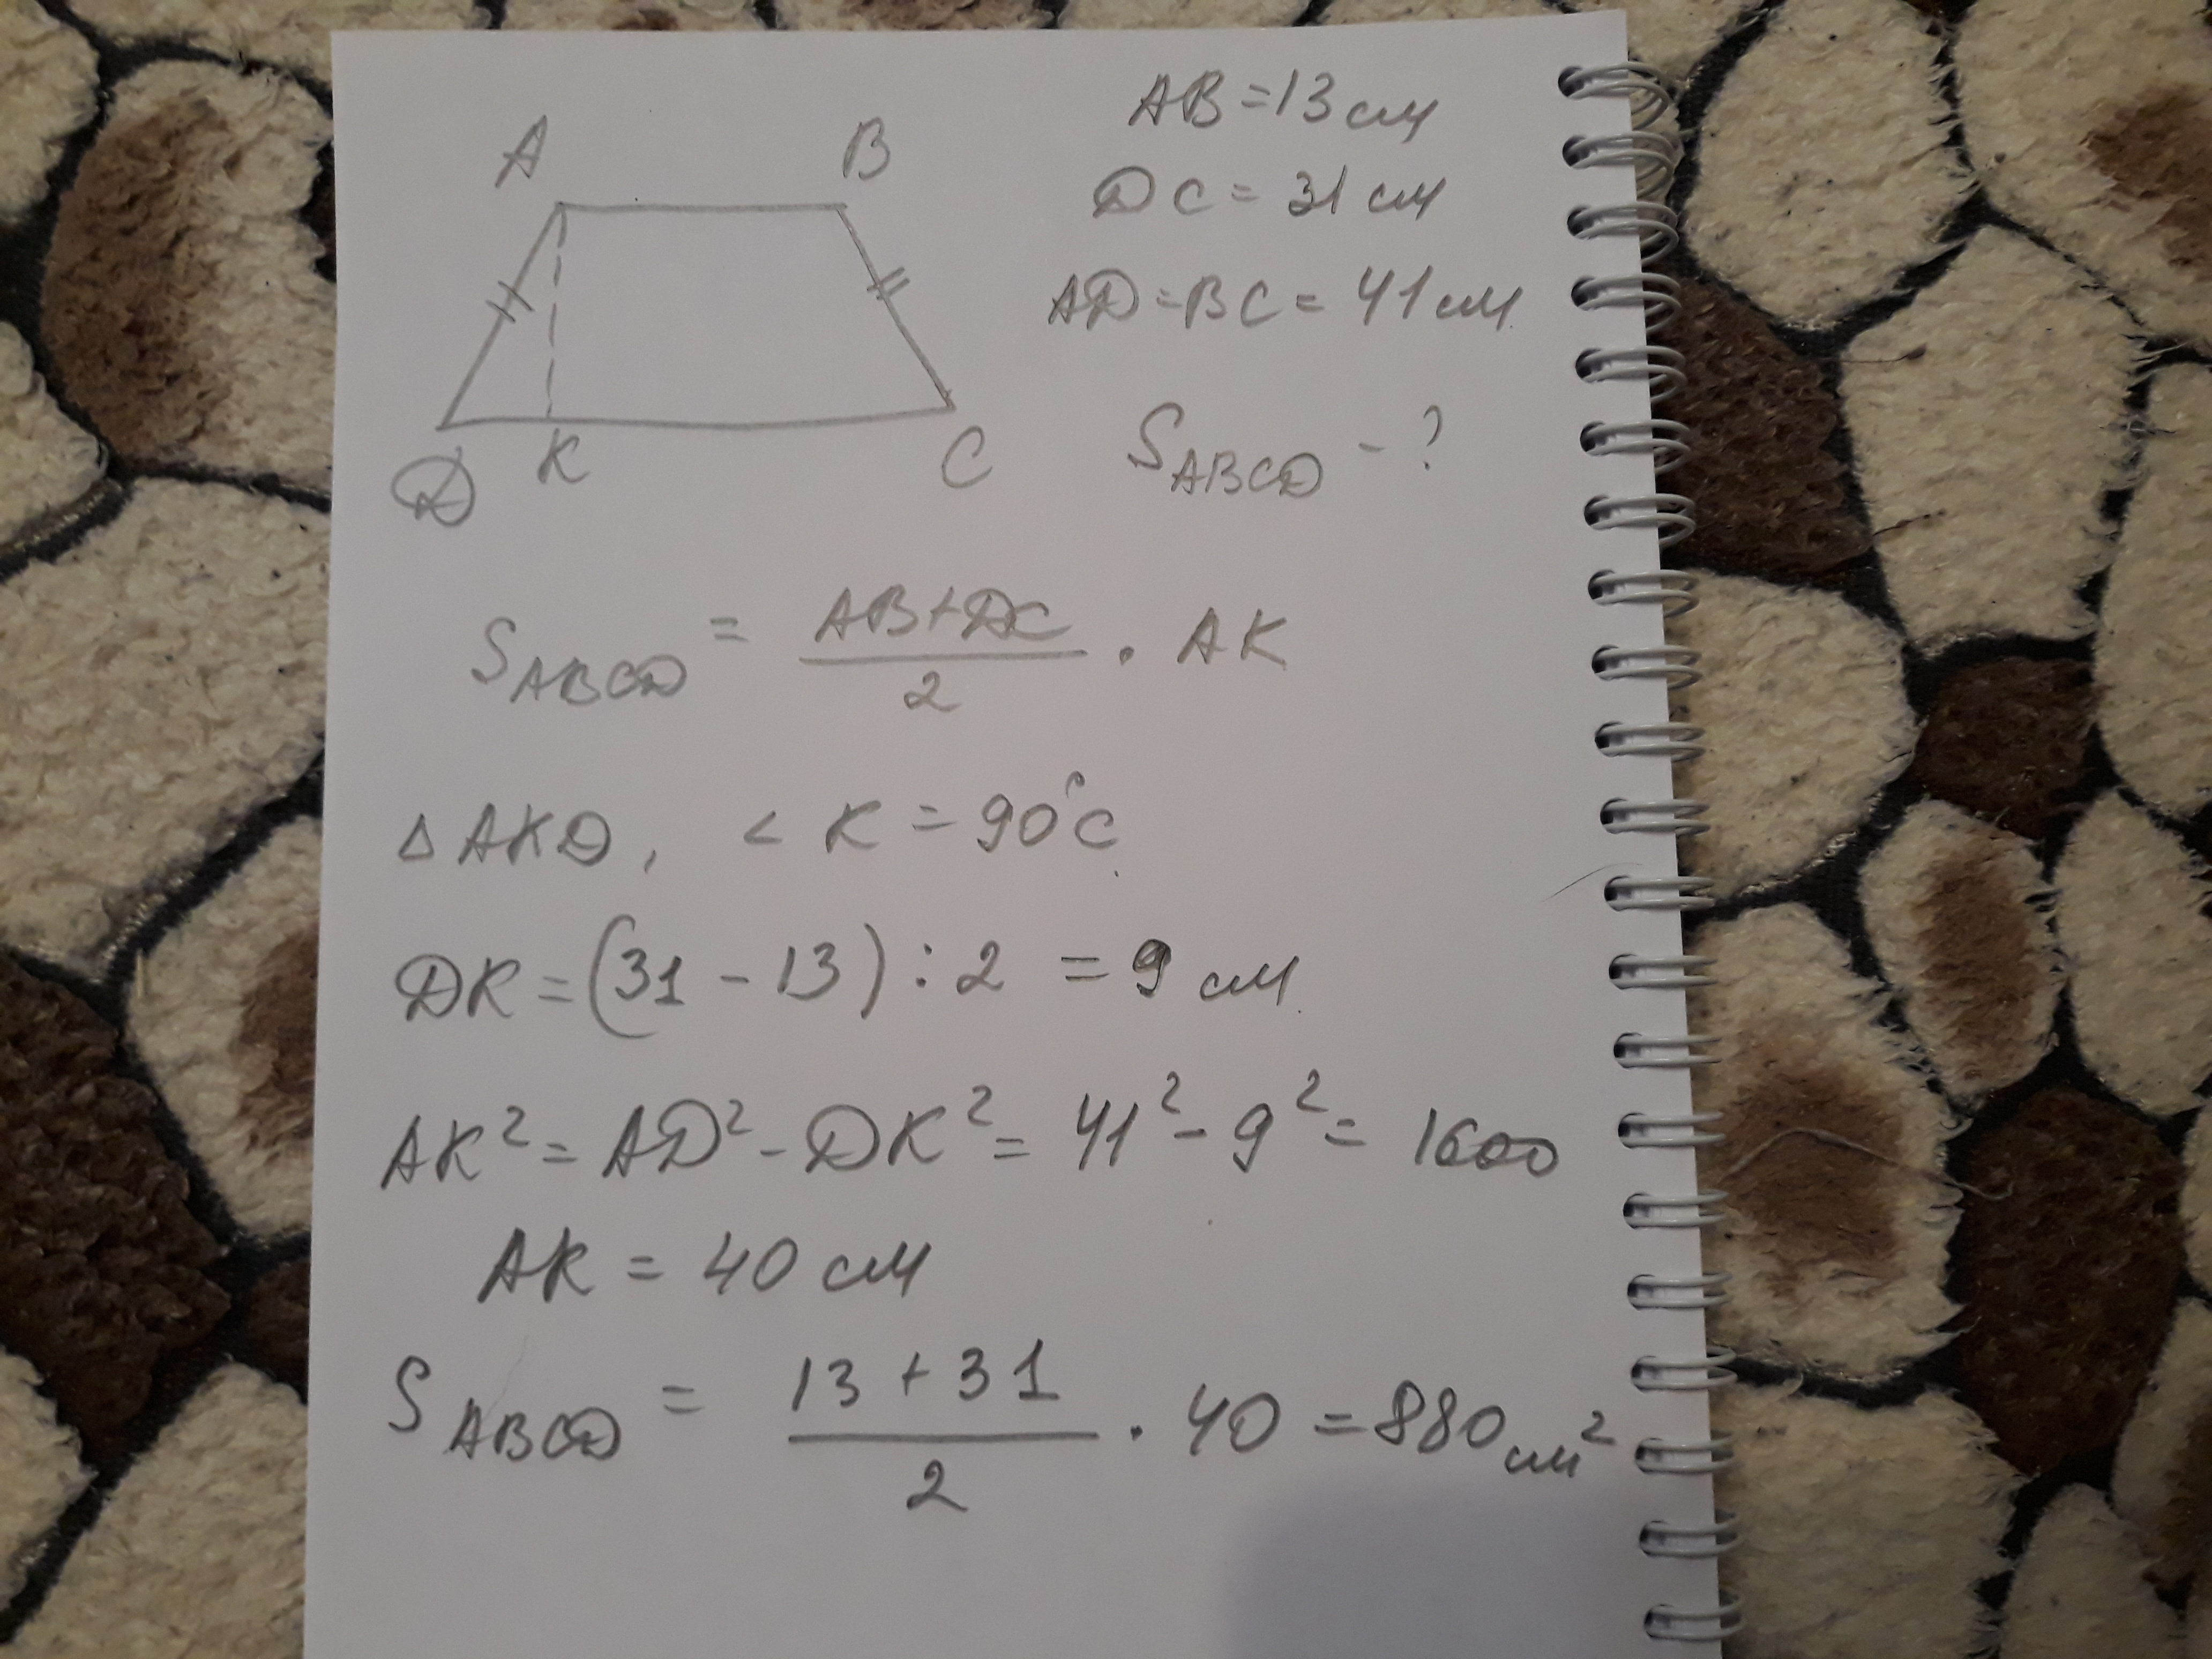 A B
D K C
AB = 13 см
DC = 31 см
AD = BC = 41 см.
S ABCD - ?
S ABCD = (AB + DC) / 2 · AK
△ AKD, < K = 90°C.
DK = (31 - 13) : 2 = 9 см.
AK² = AD² - DK² = 41² - 9² = 1600
AK = 40 см
S ABCD = (13 + 31) / 2 · 40 = 880 см²